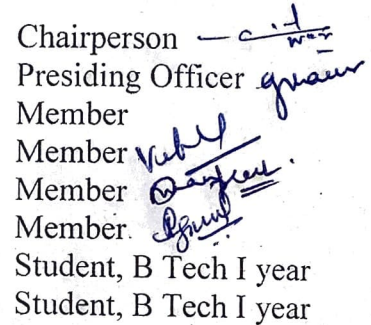 Chairperson
Presiding Officer
Member
Member
Member
Member.
Student, B Tech I year
Student, B Tech I year